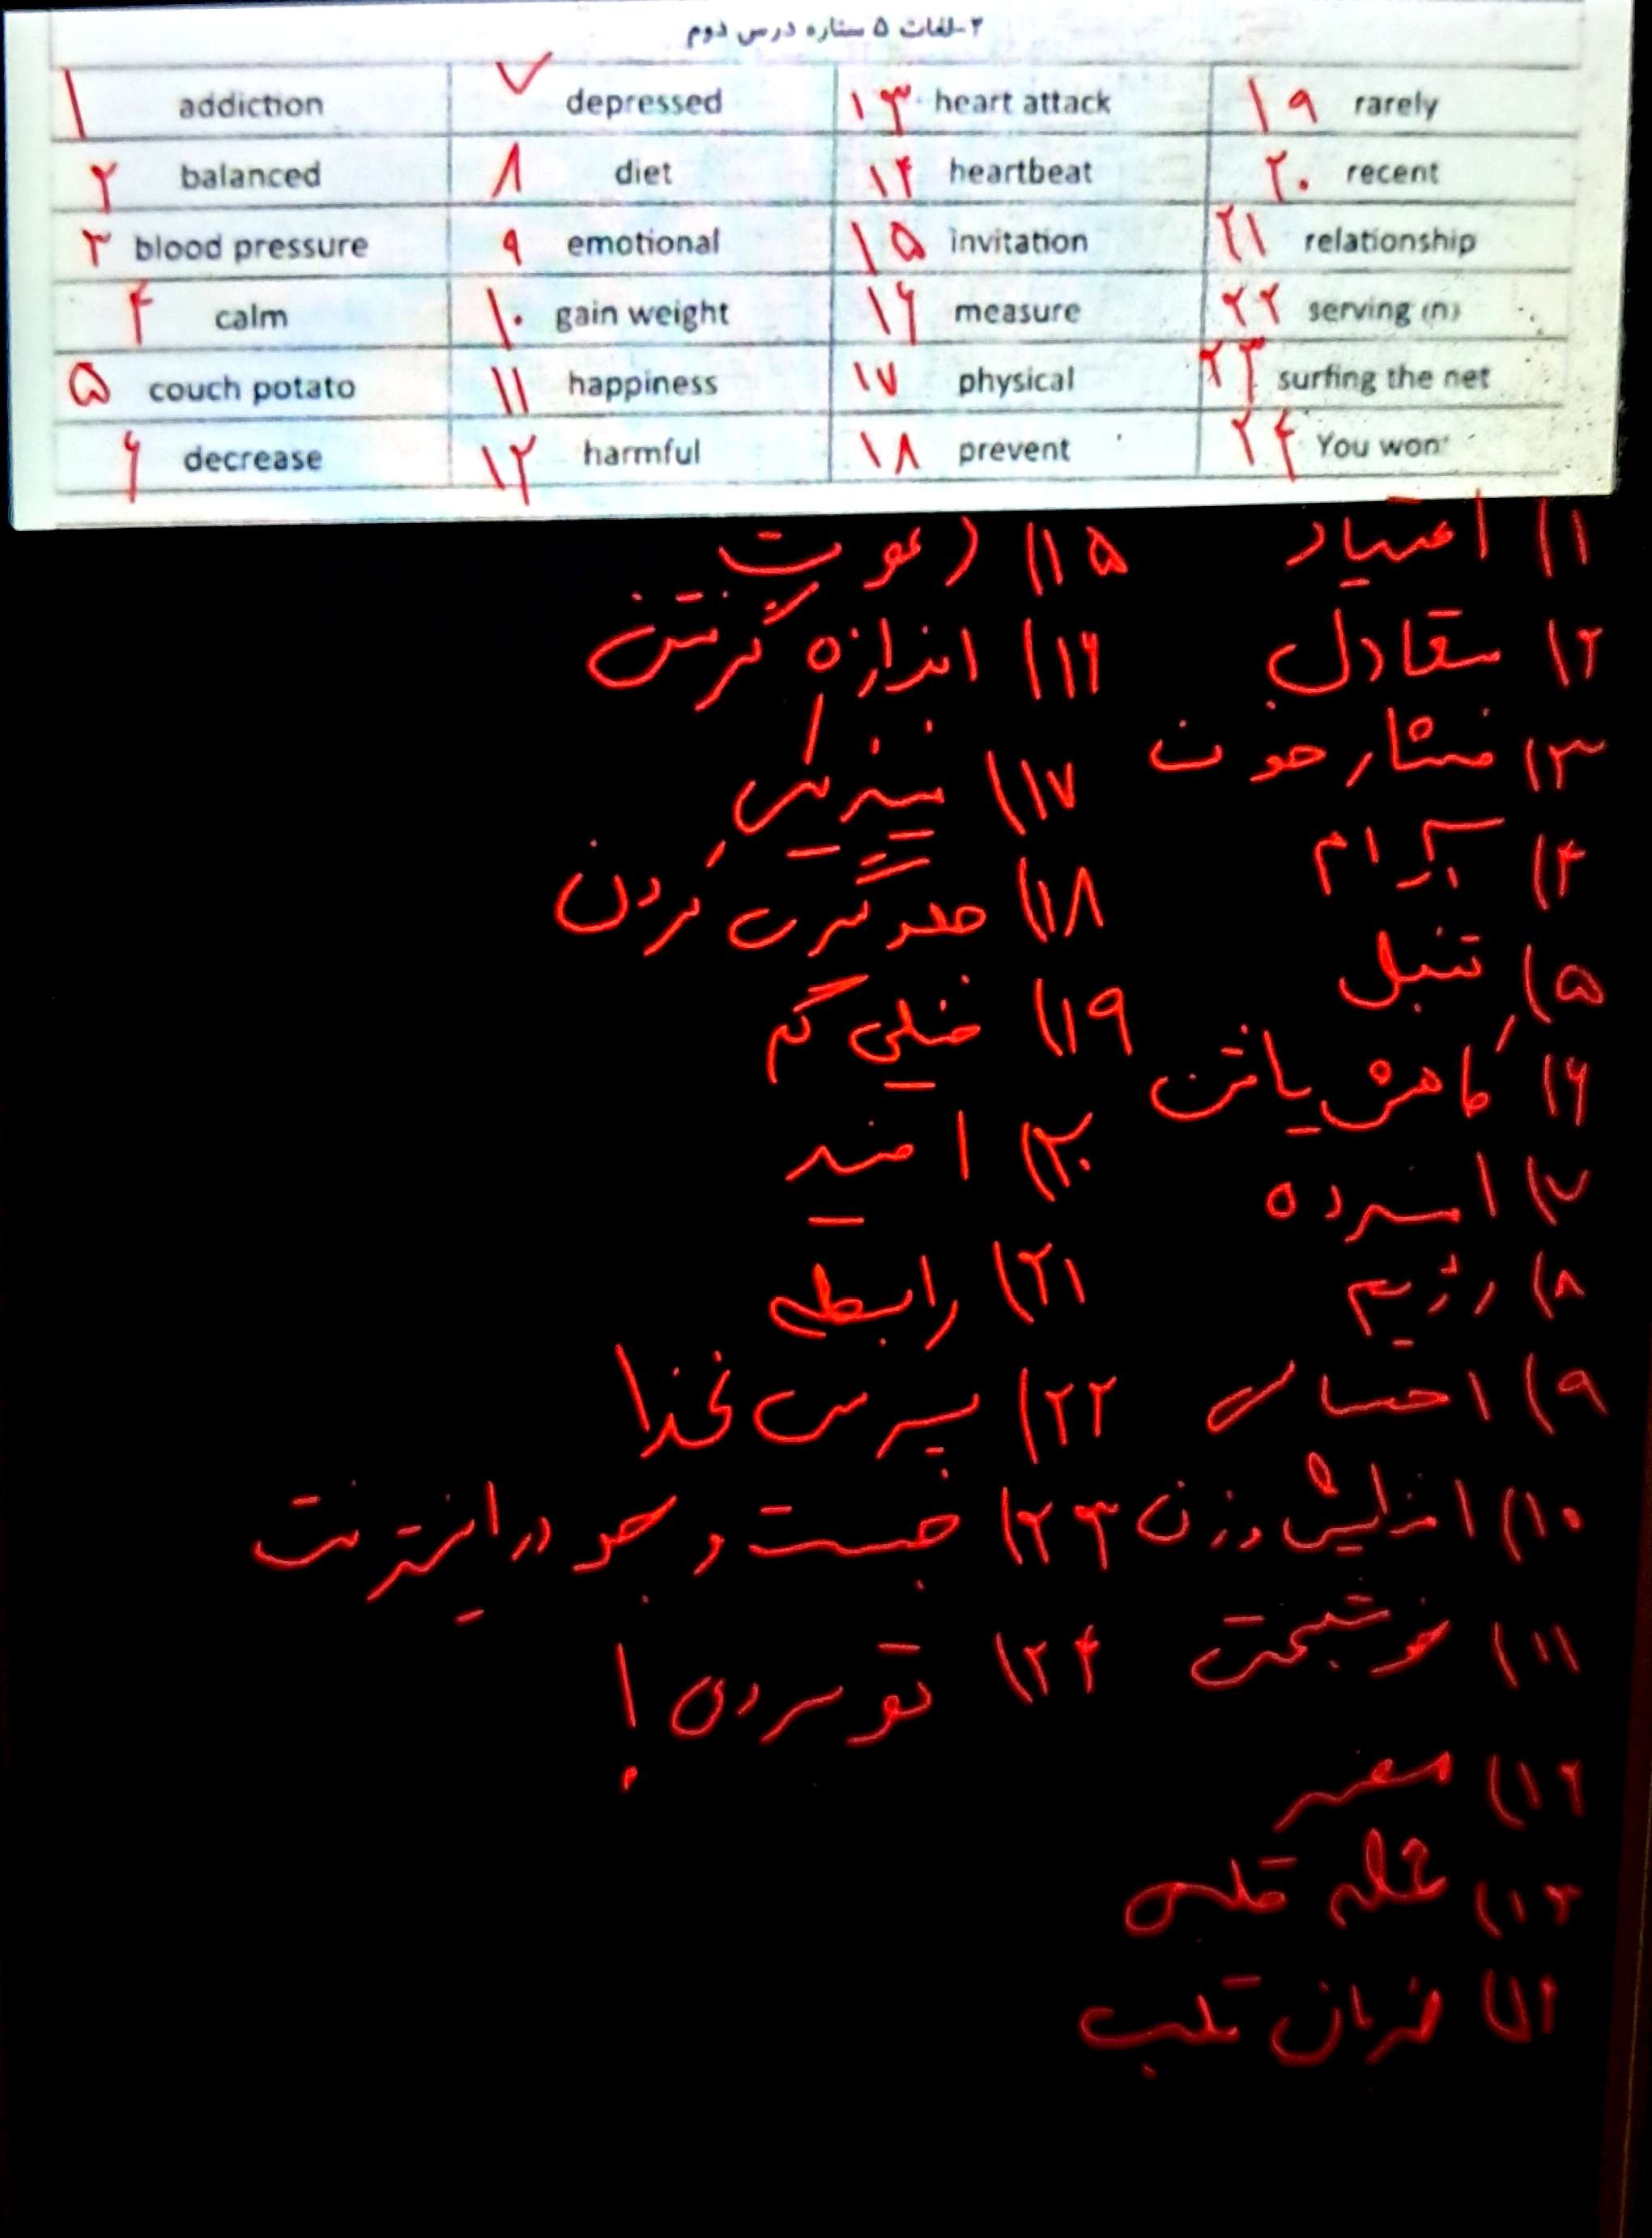 ۲-لغات ۵ ستاره درس دوم
۱ addiction ۷ depressed ۱۳ heart attack ۱۹ rarely
۲ balanced ۸ diet ۱۴ heartbeat ۲۰ recent
۳ blood pressure ۹ emotional ۱۵ invitation ۲۱ relationship
۴ calm ۱۰ gain weight ۱۶ measure ۲۲ serving (n)
۵ couch potato ۱۱ happiness ۱۷ physical ۲۳ surfing the net
۶ decrease ۱۲ harmful ۱۸ prevent ۲۴ You won
۱) اعتیاد
۲) متعادل
۳) فشار خون
۴) آرام
۵) تنبل
۶) کاهش یافتن
۷) افسرده
۸) رژیم
۹)
۱۰) افزایش وزن
۱۱) خوشبخت
۱۲) مضر
۱۳) حمله قلبی
۱۴) ضربان قلب
۱۵) دعوت
۱۶) اندازه گرفتن
۱۷) فیزیکی
۱۸) جلوگیری کردن
۱۹) خیلی کم
۲۰)
۲۱) رابطه
۲۲) پرس غذا
۲۳) جست و جو در اینترنت
۲۴) تو بردی!